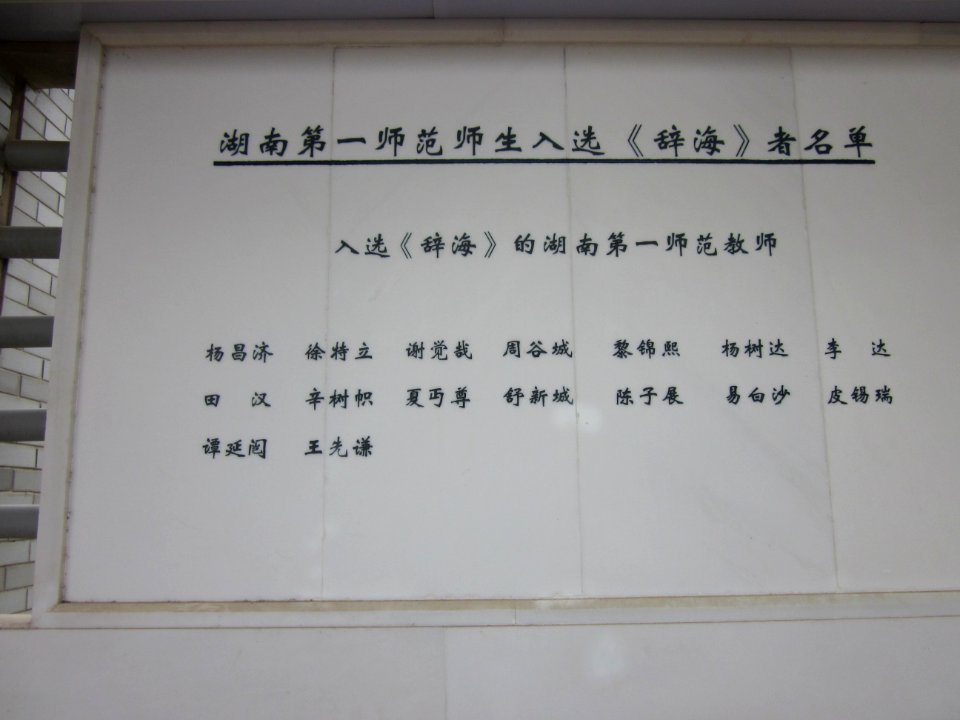 湖南第一师范师生入选《辞海》者名单
入选《辞海》的湖南第一师范教师
杨昌济 徐特立 谢觉哉 周谷城 黎锦熙 杨树达 李 达
田 汉 辛树帜 夏丏尊 舒新城 陈子展 易白沙 皮锡瑞
谭延闿 王先谦